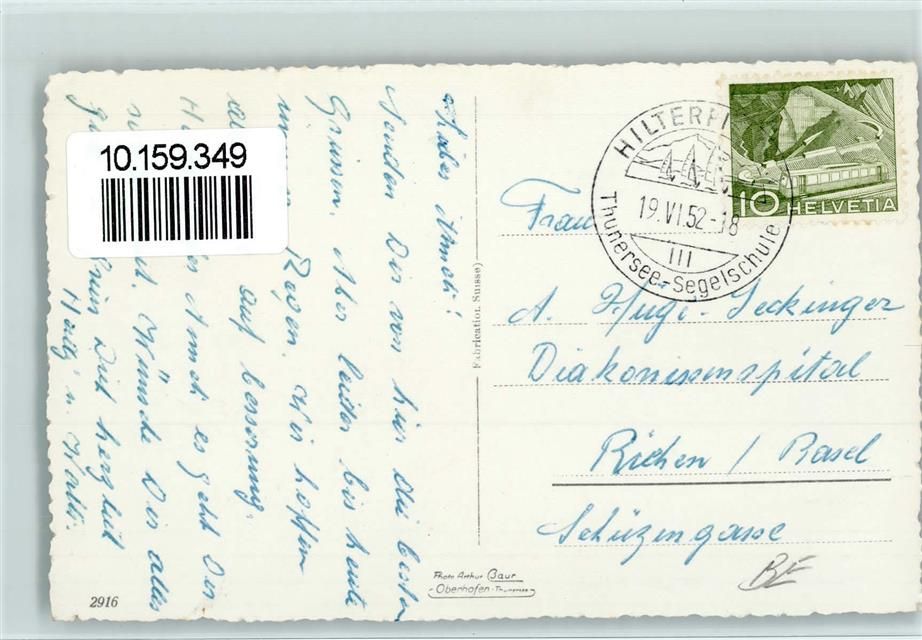 10.159.349
Liebes Anneli!
Senden Dir von hier die besten
Grüssen. Aber leider bis heute
immer Regen. Wir hoffen
auf besserung.
es geht Dir
Wünsche Dir alles
Dich herzlich
Heidy u. Walti.
2916
Fabrication Suisse)
Photo Arthur Baur
Oberhofen-Thunersee
HILTERFI
19.VI.52-18
III
Thunersee-Segelschule
10 HELVETIA
Frau
A. Hugi-Seckinger
Diakonissenspital
Riehen / Basel
Schützengasse